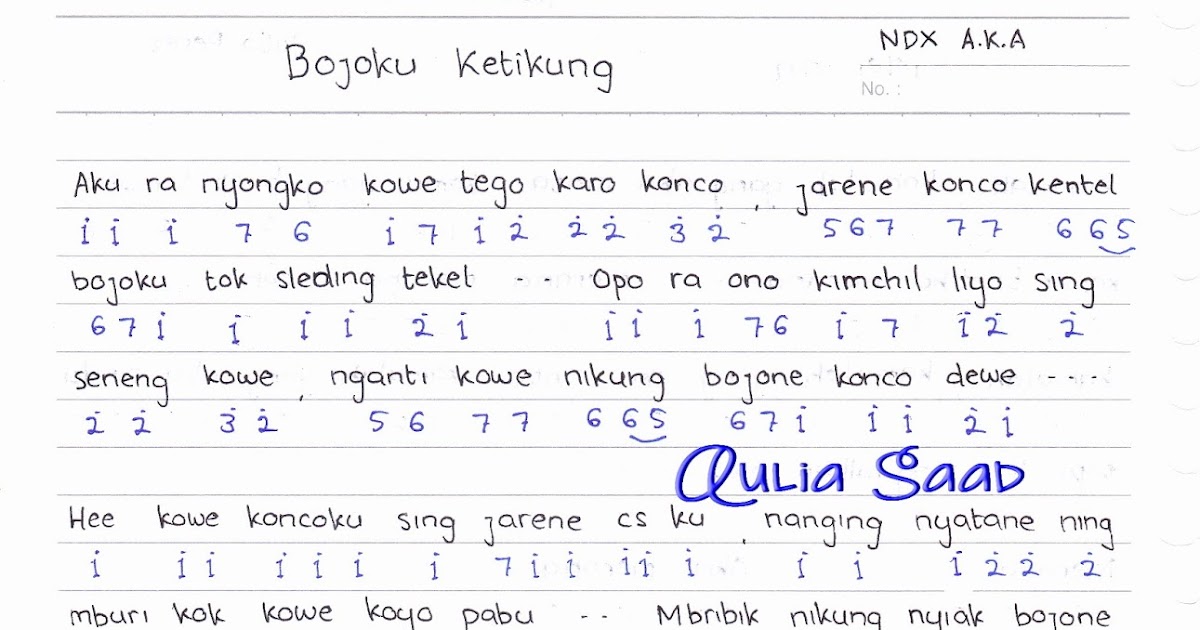 NDX A.K.A
Bojoku Ketikung
No. :
Aku ra nyongko kowe tego karo konco, jarene konco kentel
i̇ i̇ i̇ 7 6 i̇ 7 i̇ 2̇ 2̇ 2̇ 3̇ 2̇ 5 6 7 7 7 6 6 5
bojoku tok sleding tekel -- Opo ra ono kimchil liyo sing
6 7 i̇ i̇ i̇ i̇ 2̇ i̇ i̇ i̇ i̇ 7 6 i̇ 7 i̇ 2̇ 2̇
seneng kowe, nganti kowe nikung bojone konco dewe ----
2̇ 2̇ 3̇ 2̇ 5 6 7 7 6 6 5 6 7 i̇ i̇ i̇ 2̇ i̇
Aulia Saad
Hee kowe koncoku sing jarene cs ku, nanging nyatane ning
i̇ i̇ i̇ i̇ i̇ i̇ i̇ 7 i̇ i̇ i̇ i̇ i̇ i̇ i̇ i̇ 2̇ 2̇ 2̇
mburi kok kowe koyo pabu -- Mbribik nikung nyiak bojone